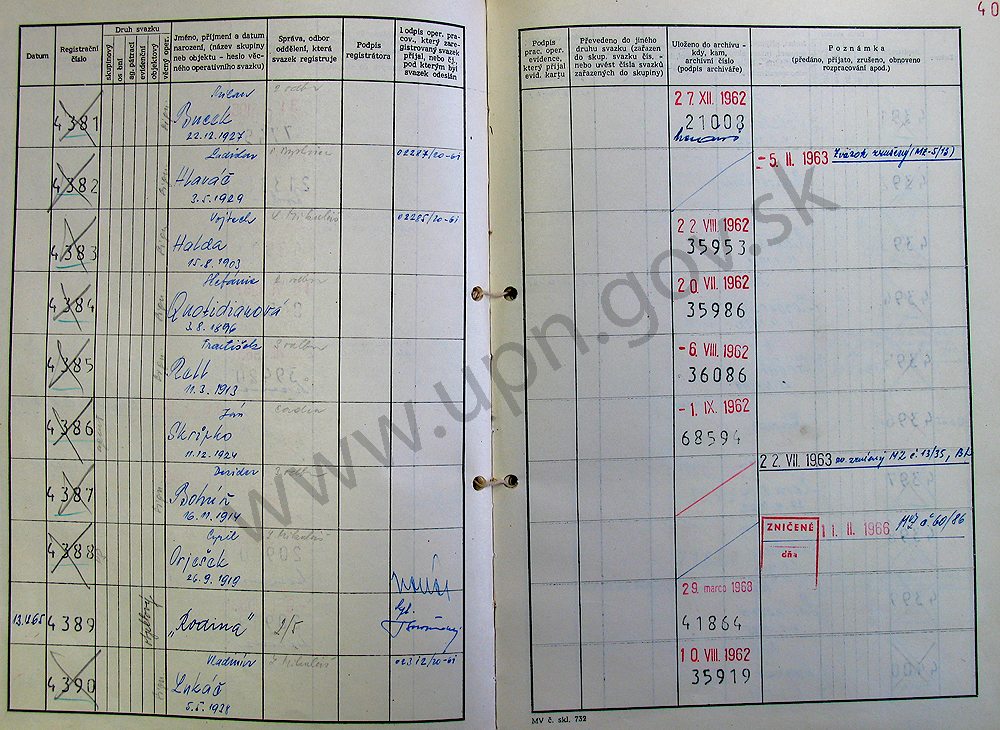 40
Datum
Registrační číslo
Druh svazku
skupinový
osobní
sg. pátrací
evidenční
objektový
věcný oper.
Jméno, příjmení a datum
narození, (název skupiny
neb objektu - heslo věc-
ného operativního svazku)
Správa, odbor
oddělení, která
svazek registruje
Podpis
registrátora
Podpis oper. pra-
cov., který zare-
gistrovaný svazek
přijal, nebo čj.
pod kterým byl
svazek odeslán
Podpis
prac. oper.
evidence,
který přijal
evid. kartu
Převedeno do jiného
druhu svazku (zařazen
do skup. svazku čís. -
nebo uvést čísla svazků
zařazených do skupiny)
Uloženo do archivu -
kdy, kam,
archivní číslo
(podpis archiváře)
Poznámka
(předáno, přijato, zrušeno, obnoveno
rozpracování apod.)
4381
Milan
Bucek
22.12.1927
2 odbor
27. XII. 1962
21008
4382
Ladislav
Hlaváč
3.5.1929
02287/20-61
-5. II. 1963 Zväzok zrušený (MZ-5/13)
4383
Vojtech
Halda
15.8.1903
L. Mikuláš
02285/20-61
22. VIII. 1962
35953
4384
Štefánia
Quotidianová
3.8.1896
2. odbor
20. VII. 1962
35986
4385
František
Ratt
11.3.1913
2 odbor
-6. VIII. 1962
36086
4386
Ján
Skripko
11.12.1924
-1. IX. 1962
68594
4387
Dezider
16.11.1914
22. VII. 1963 zv zrušený MZ č 13/35, BA
4388
Cyril
Orješek
26.9.1919
L Mikuláš
ZNIČENÉ
dňa
11. II. 1966 MZ č 60/86
13.4.65
4389
objektový
„Rodina"
2/5
29. marca 1968
41864
4390
Vladimír
Lukáč
5.5.1928
L Mikuláš
02312/20-61
10. VIII. 1962
35919
MV č. skl. 732
www.upn.gov.sk